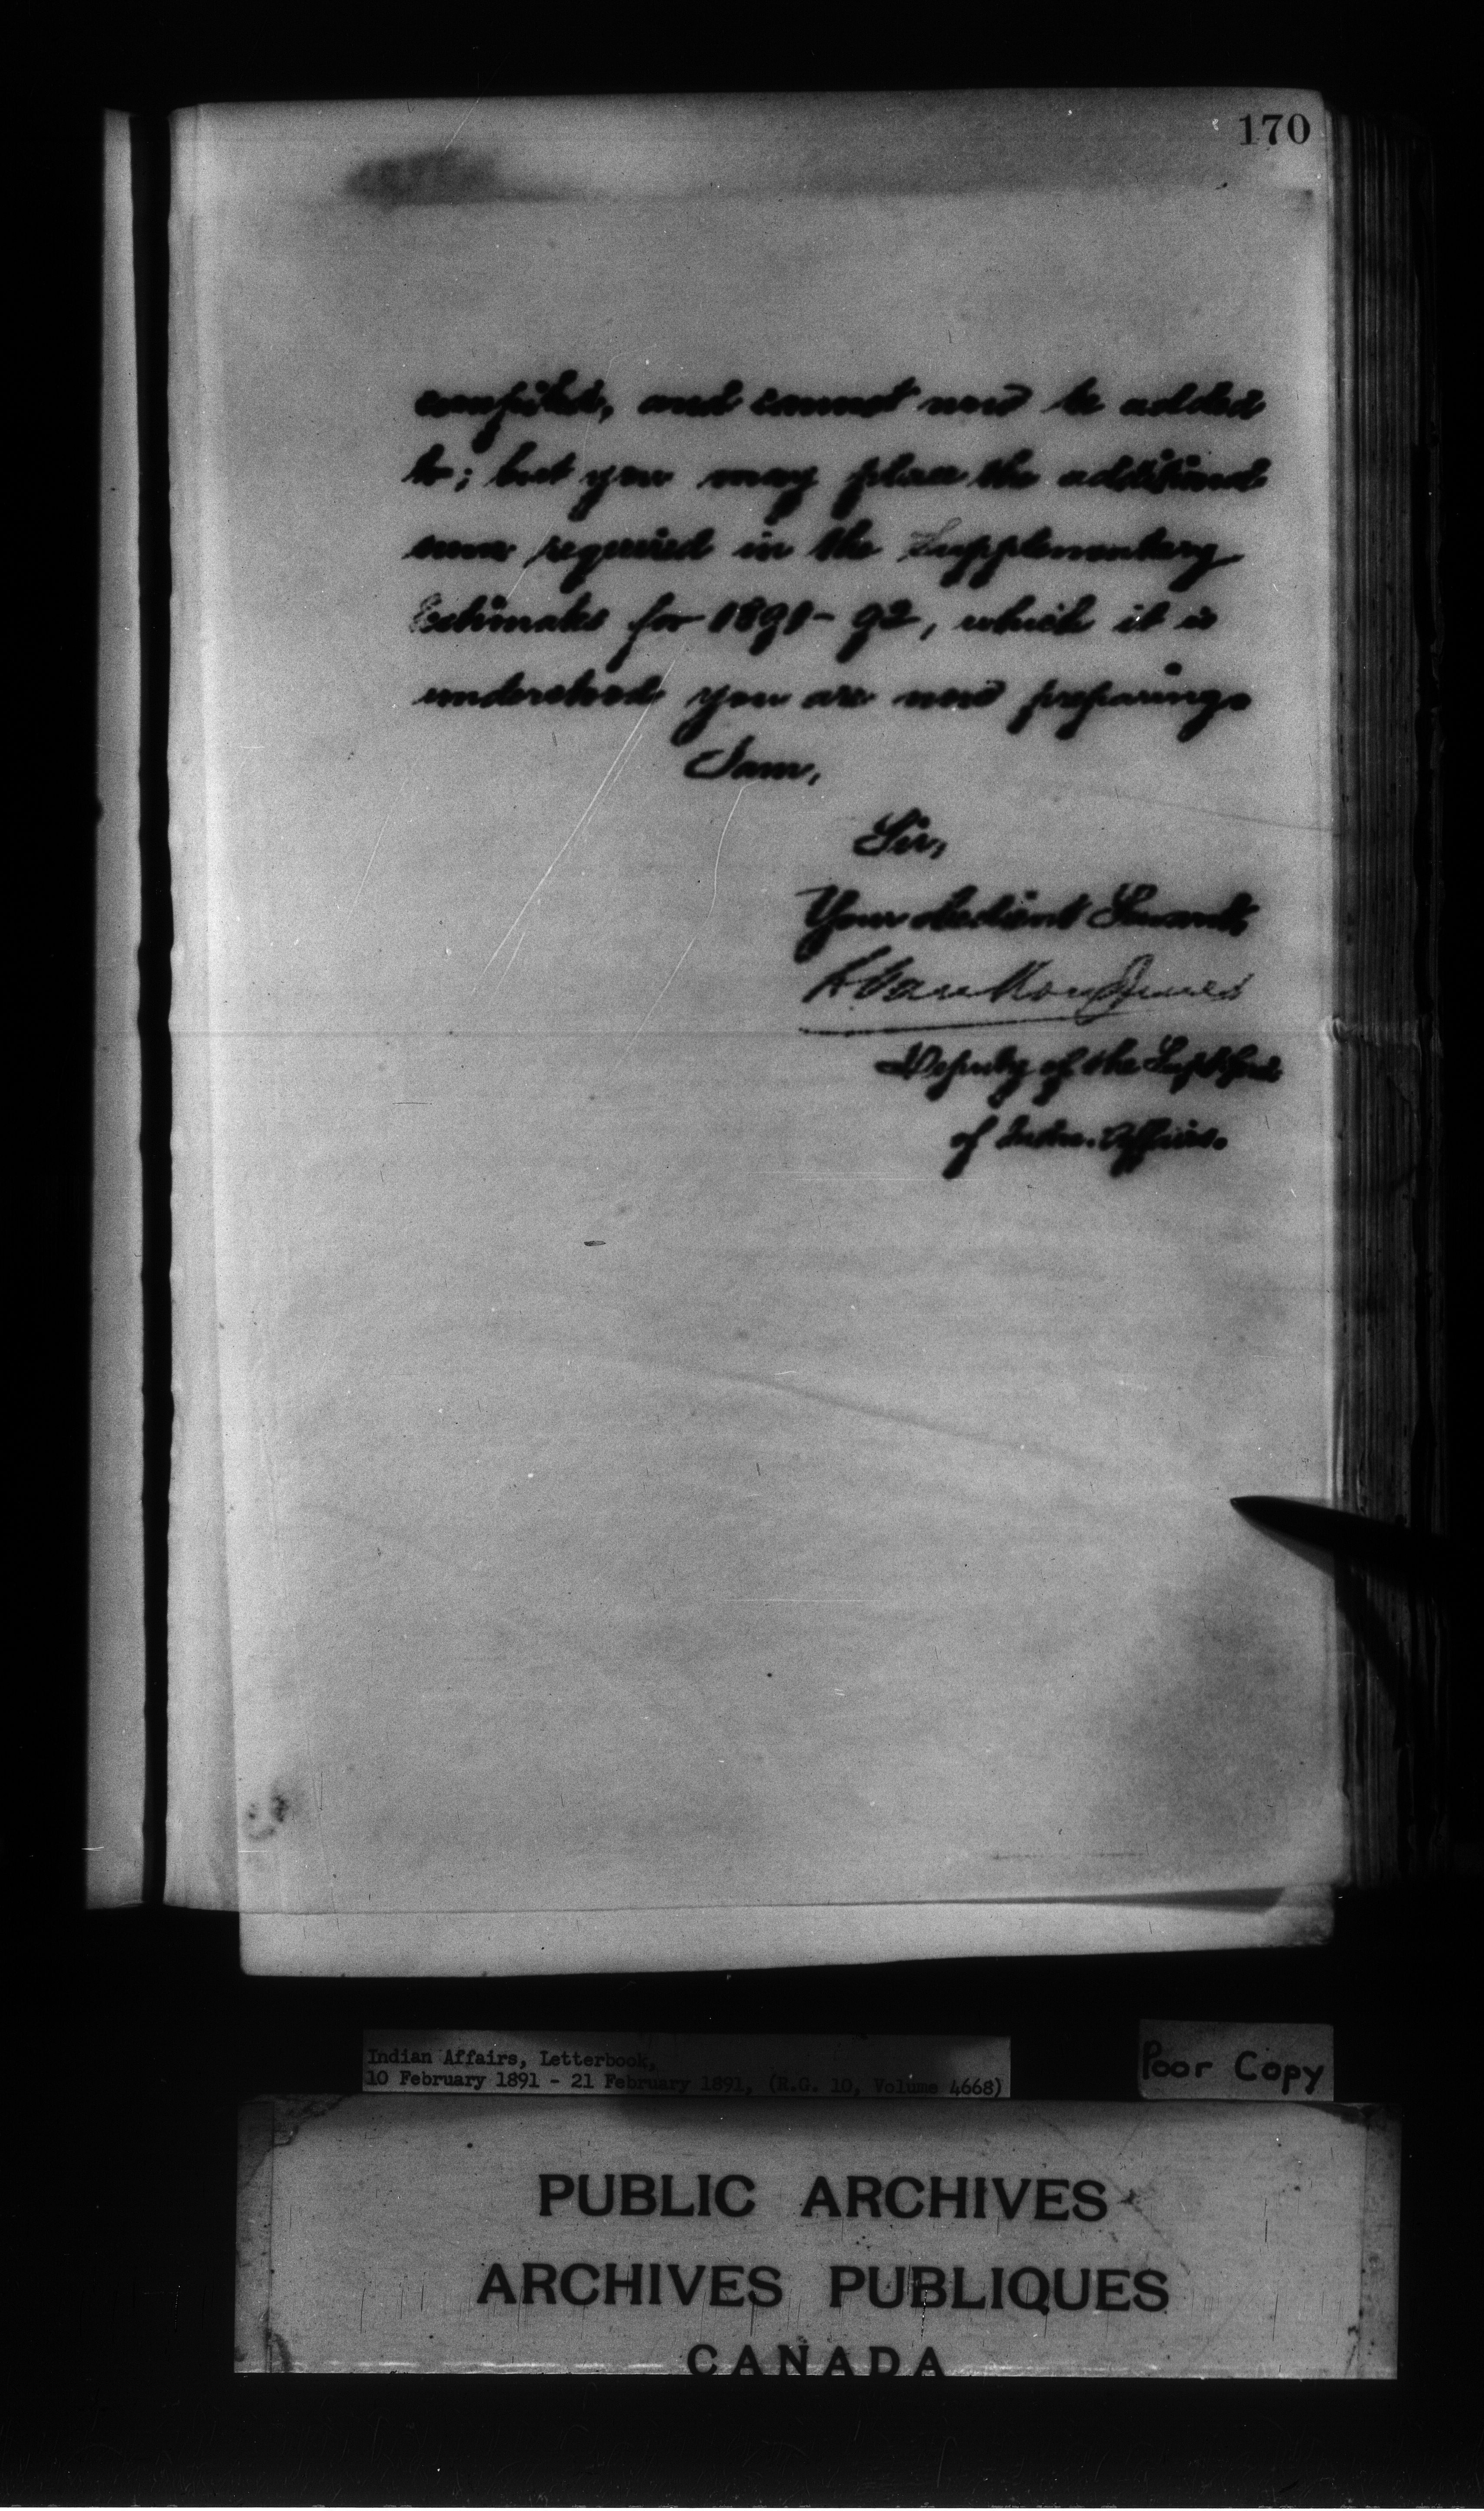 170
compiled, and cannot now be added
to; but you may place the additional
sums required in the Supplementary
Estimates for 1891-92, which it is
understood you are now preparing.
I am,
Sir,
Your obedient Servant,
L Vankoughnet
Deputy of the Supt Genl
of Indn. Affairs.
Indian Affairs, Letterbook,
10 February 1891 - 21 February 1891, (R.G. 10, Volume 4668)
Poor Copy
PUBLIC ARCHIVES
ARCHIVES PUBLIQUES
CANADA